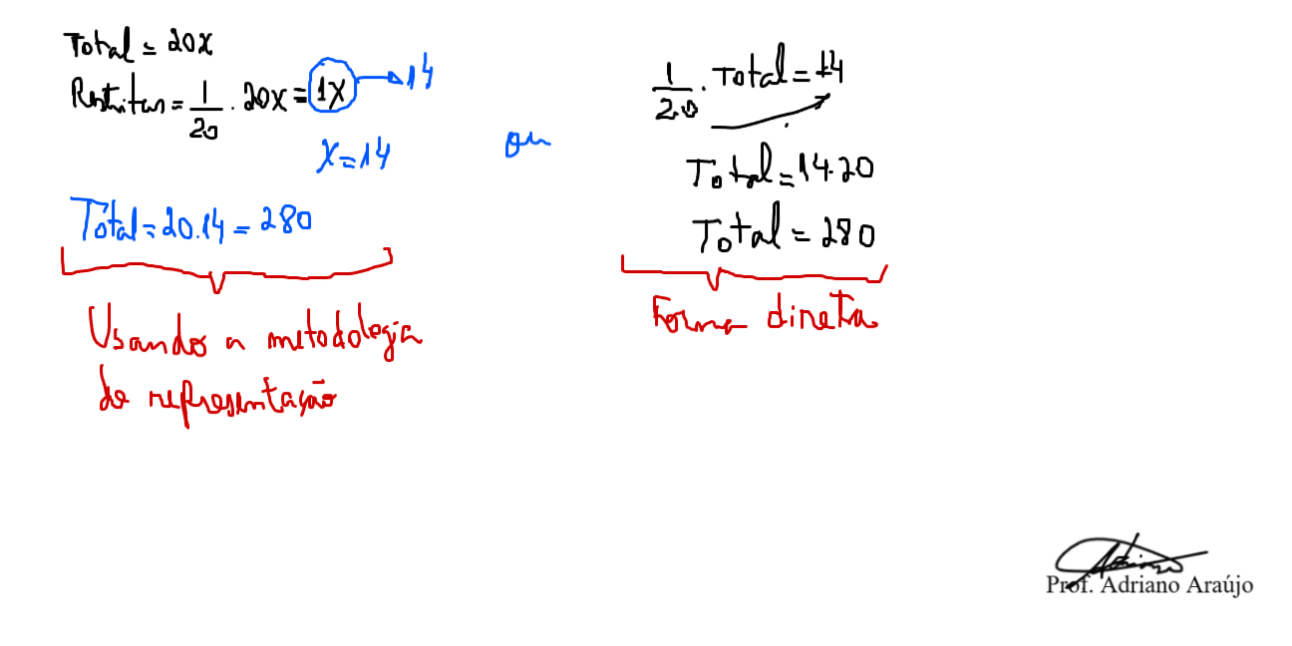 Total = 20x
Restritas = 1/20 . 20x = 1x → 14
x = 14
Total = 20.14 = 280
Usando a metodologia
de representação
ou
1/20 . Total = 14
Total = 14.20
Total = 280
Forma direta
Prof. Adriano Araújo